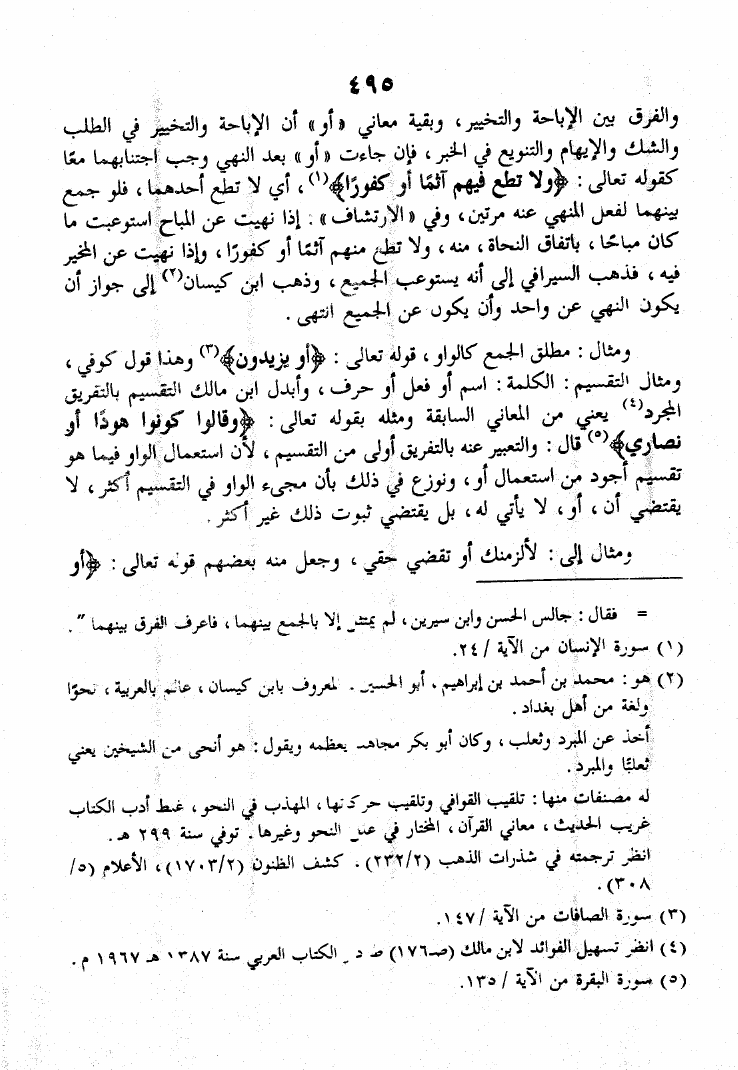 ٤٩٥
والفرق بين الإباحة والتخيير، وبقية معاني «أو» أن الإباحة والتخيير في الطلب
والشك والإيهام والتنويع في الخبر، فإن جاءت «أو» بعد النهي وجب اجتنابهما معًا
كقوله تعالى: ﴿ولا تطع فيهم آثمًا أو كفورًا﴾(١)، أي لا تطع أحدهما، فلو جمع
بينهما لفعل المنهي عنه مرتين، وفي «الارتشاف»: إذا نهيت عن المباح استوعبت ما
كان مباحًا، باتفاق النحاة، منه، ولا تطع منهم آثمًا أو كفورًا، وإذا نهيت عن المخير
فيه، فذهب السيرافي إلى أنه يستوعب الجميع، وذهب ابن كيسان(٢) إلى جواز أن
يكون النهي عن واحد وأن يكون عن الجميع انتهى.
ومثال: مطلق الجمع كالواو، قوله تعالى: ﴿أو يزيدون﴾(٣) وهذا قول كوفي،
ومثال التقسيم: الكلمة: اسم أو فعل أو حرف، وأبدل ابن مالك التقسيم بالتفريق
المجرد(٤) يعني من المعاني السابقة ومثله بقوله تعالى: ﴿وقالوا كونوا هودًا أو
نصاري﴾(٥) قال: والتعبير عنه بالتفريق أولى من التقسيم، لأن استعمال الواو فيما هو
تقسيم أجود من استعمال أو، ونوزع في ذلك بأن مجيء الواو في التقسيم أكثر، لا
يقتضي أن، أو، لا يأتي له، بل يقتضي ثبوت ذلك غير أكثر.
ومثال إلى: لألزمنك أو تقضي حقي، وجعل منه بعضهم قوله تعالى: ﴿أو
= فقال: جالس الحسن وابن سيرين، لم يمتثل إلا بالجمع بينهما، فاعرف الفرق بينهما".
(١) سورة الإنسان من الآية /٢٤.
(٢) هو: محمد بن أحمد بن إبراهيم. أبو الحسين. المعروف بابن كيسان، عالم بالعربية، نحوًا
ولغة من أهل بغداد.
أخذ عن المبرد وثعلب، وكان أبو بكر مجاهد يعظمه ويقول: هو أنحى من الشيخين يعني
ثعلبًا والمبرد.
له مصنفات منها: تلقيب القوافي وتلقيب حركاتها، المهذب في النحو، غلط أدب الكتاب
غريب الحديث، معاني القرآن، المختار في علل النحو وغيرها. توفي سنة ٢٩٩ هـ.
انظر ترجمته في شذرات الذهب (٢٣٢/٢). كشف الظنون (١٧٠٣/٢)، الأعلام (٥/
٣٠٨).
(٣) سورة الصافات من الآية /١٤٧.
(٤) انظر تسهيل الفوائد لابن مالك (صـ١٧٦) ط د. الكتاب العربي سنة ١٣٨٧ هـ ١٩٦٧ م.
(٥) سورة البقرة من الآية /١٣٥.